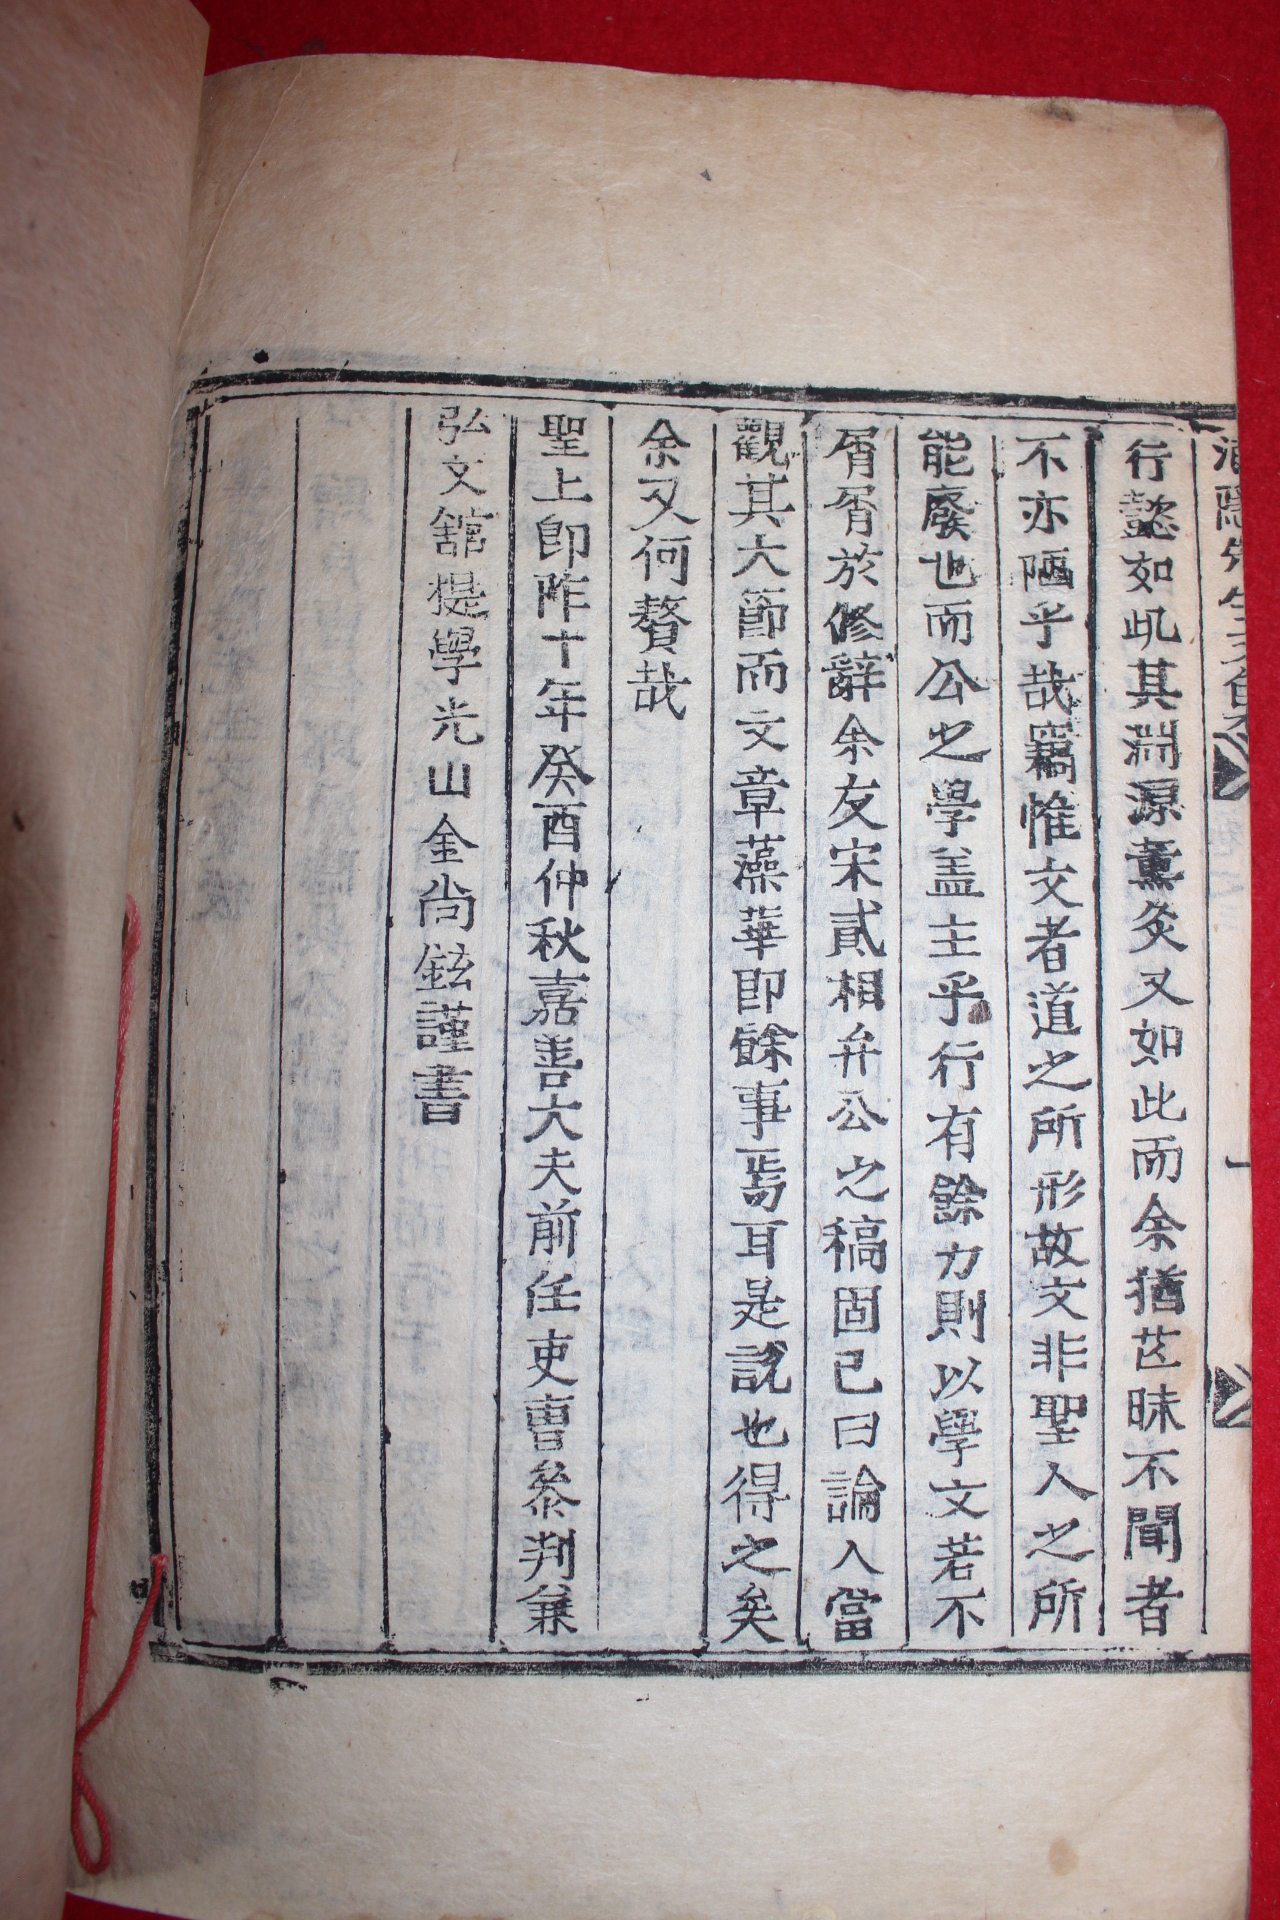 行懿如此其淵源薰炙又如此而余猶茫昧不聞者
不亦陋乎哉竊惟文者道之所形故文非聖人之所
能廢也而公之學盖主乎行有餘力則以學文若不
屑屑於修辭余友宋貳相弁公之稿固已曰論人當
觀其大節而文章藻華即餘事焉耳是說也得之矣
余又何贅哉
聖上卽阼十年癸酉仲秋嘉善大夫前任吏曹叅判兼
弘文舘提學光山金尙鉉謹書